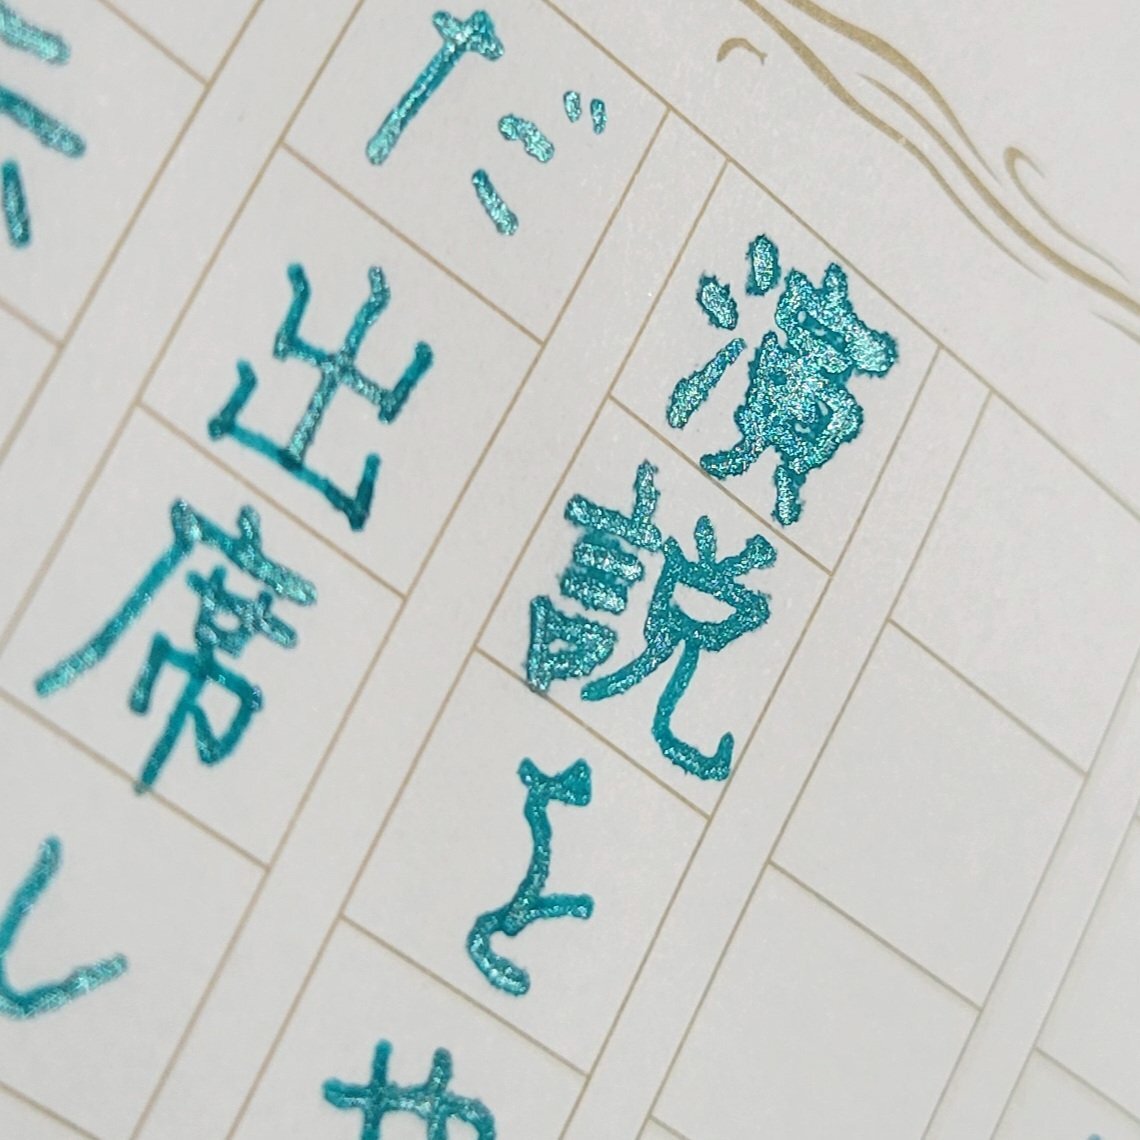 演説と
だ出席し